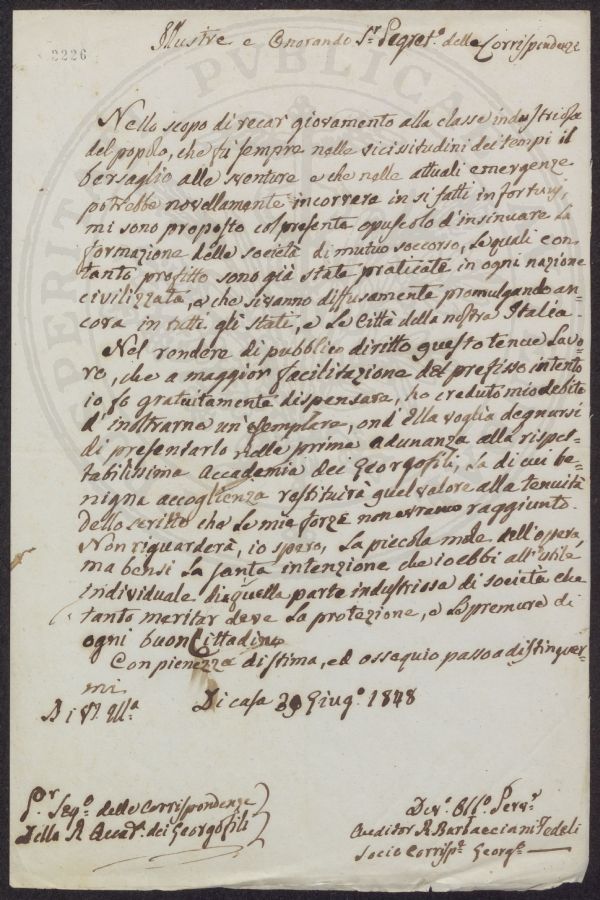 Illustre e Onorando Sr Segreto delle Corrispondenze
2226
Nello scopo di recar giovamento alla classe industriosa
del popolo, che fù sempre nelle vicissitudini dei tempi il
bersaglio alle sventure e che nelle attuali emergenze
potrebbe novellamente incorrere in si fatti infortunj,
mi sono proposto col presente opuscolo d'insinuare la
formazione delle società di mutuo soccorso, le quali con
tanto profitto sono già state praticate in ogni nazione
civilizzata, e che si vanno diffusamente promulgando an=
cora in tutti gli stati, e le Città della nostra Italia.
Nel rendere di pubblico diritto questo tenue Lavo=
ro, che a maggior facilitazione del prefisso intento
io fo gratuitamente dispensare, ho creduto mio debito
d'inoltrarne un'esemplare, ond'Ella voglia degnarsi
di presentarlo nella prima adunanza alla rispet=
tabilissima Accademia dei Georgofili, la di cui be=
nigna accoglienza restituirà quel valore alla tenuità
dello scritto che le mie forze non avranno raggiunto.
Non riguarderà, io spero, la piccola mole dell'opera
ma bensì la santa intenzione che io ebbi all'utile
individuale di quella parte industriosa di società che
tanto meritar deve la protezione, e le premure di
ogni buon Cittadino
Con pienezza di stima, ed ossequio passo a distinguer=
mi
Di V. Illa Di casa 29 Giugo 1848
Sr Sego delle Corrispondenze
Della R Accada dei Georgofili
Devo Obbo Servr
Auditor R Barbacciani Fedeli
Socio Corrispe Georgo